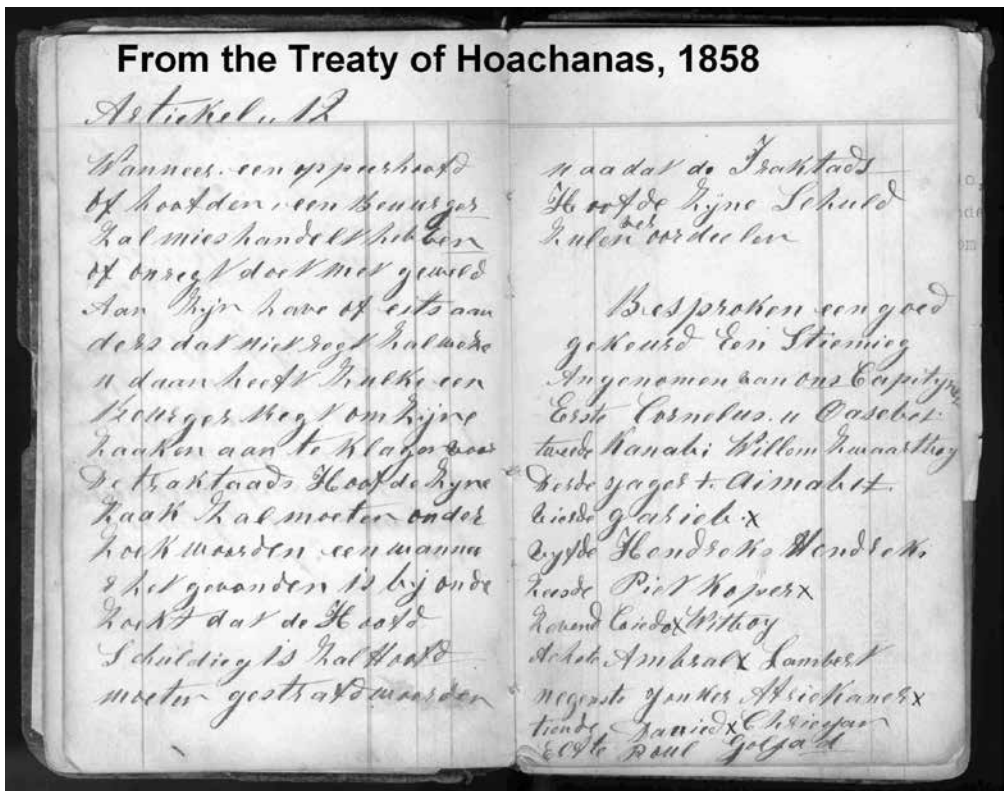 From the Treaty of Hoachanas, 1858
Artickel 12
Wanneer een opperhoofd
of hoofden een Beurger
Zal mieshandelt hebben
of onregt doet met geweld
Aan Zijn have of eits aan
ders dat niet regt Zal weze
n daan heeft Zulke een
Beurger Regt om Zijne
Zaaken aan te klagen voor
De traktaads Hoofde Zyne
Zaak Zal moeten onder
Zoek woorden een wannee
r het gevonden is bij onde
Zoekt dat de Hoofd
Schuldieg is Zal Hoofd
moeten gestrafd woorden
naadat de Traktads
Hoofde Zyne Schuld
Zulen veroordeelen
Besproken een goed
gekeurd Een Stiemieg
Angenomen van ons Capityns
Erste Cornelus Oasebet
tweede Kanabi Willem Zwaartboy
Derde yager + Aimabet
vierde garieb x
vyfde Hendreks Hendreks
Zesde Piet Koper x
Zevend x Witboy
Achste Ambral x Lambert
negenste yonker Afriekaner x
tiende Dawied x Chrieyan
Elfte Poul Goljad